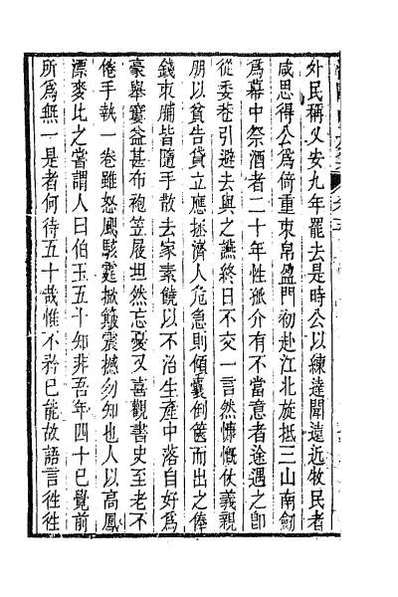 外民稱乂安九年罷去是時公以練達聞遠近牧民者
咸思得公爲倚重束帛盈門初赴江北旋抵三山南劒
爲幕中祭酒者二十年性孤介有不當意者途遇之卽
從委巷引避去與之讌終日不交一言然慷慨仗義親
朋以貧告貸立應拯濟人危急則傾囊倒篋而出之俸
錢束脯皆隨手散去家素饒以不治生產中落自好爲
豪舉窶益甚布袍笠屐坦然忘憂又喜觀書史至老不
倦手執一卷雖怒颷駭霆掀簸震撼勿知也人以高鳳
漂麥比之嘗謂人曰伯玉五斗知非吾年四十已覺前
所爲無一是者何待五十哉惟不矜已能故語言徃徃